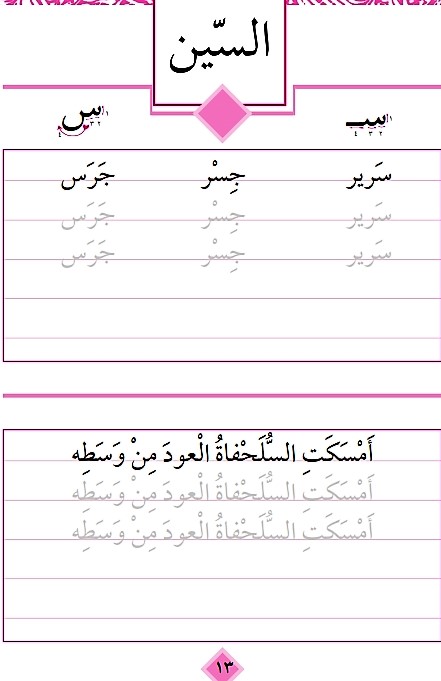 السّين
سـ س
١ ٢ ٣ ٤ ١ ٢ ٣ ٤
سَرير جِسْر جَرَس
سَرير جِسْر جَرَس
سَرير جِسْر جَرَس
أَمْسَكَتِ السُّلَحْفاةُ الْعودَ مِنْ وَسَطِه
أَمْسَكَتِ السُّلَحْفاةُ الْعودَ مِنْ وَسَطِه
أَمْسَكَتِ السُّلَحْفاةُ الْعودَ مِنْ وَسَطِه
١٣